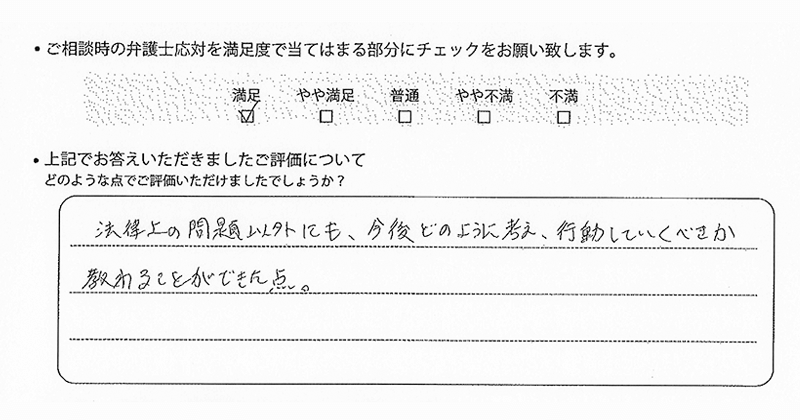 ・ご相談時の弁護士応対を満足度で当てはまる部分にチェックをお願い致します。
満足 やや満足 普通 やや不満 不満
☑ ☐ ☐ ☐ ☐
・上記でお答えいただきましたご評価について
どのような点でご評価いただけましたでしょうか？
法律上の問題以外にも、今後どのように考え、行動していくべきか
教わることができた点。